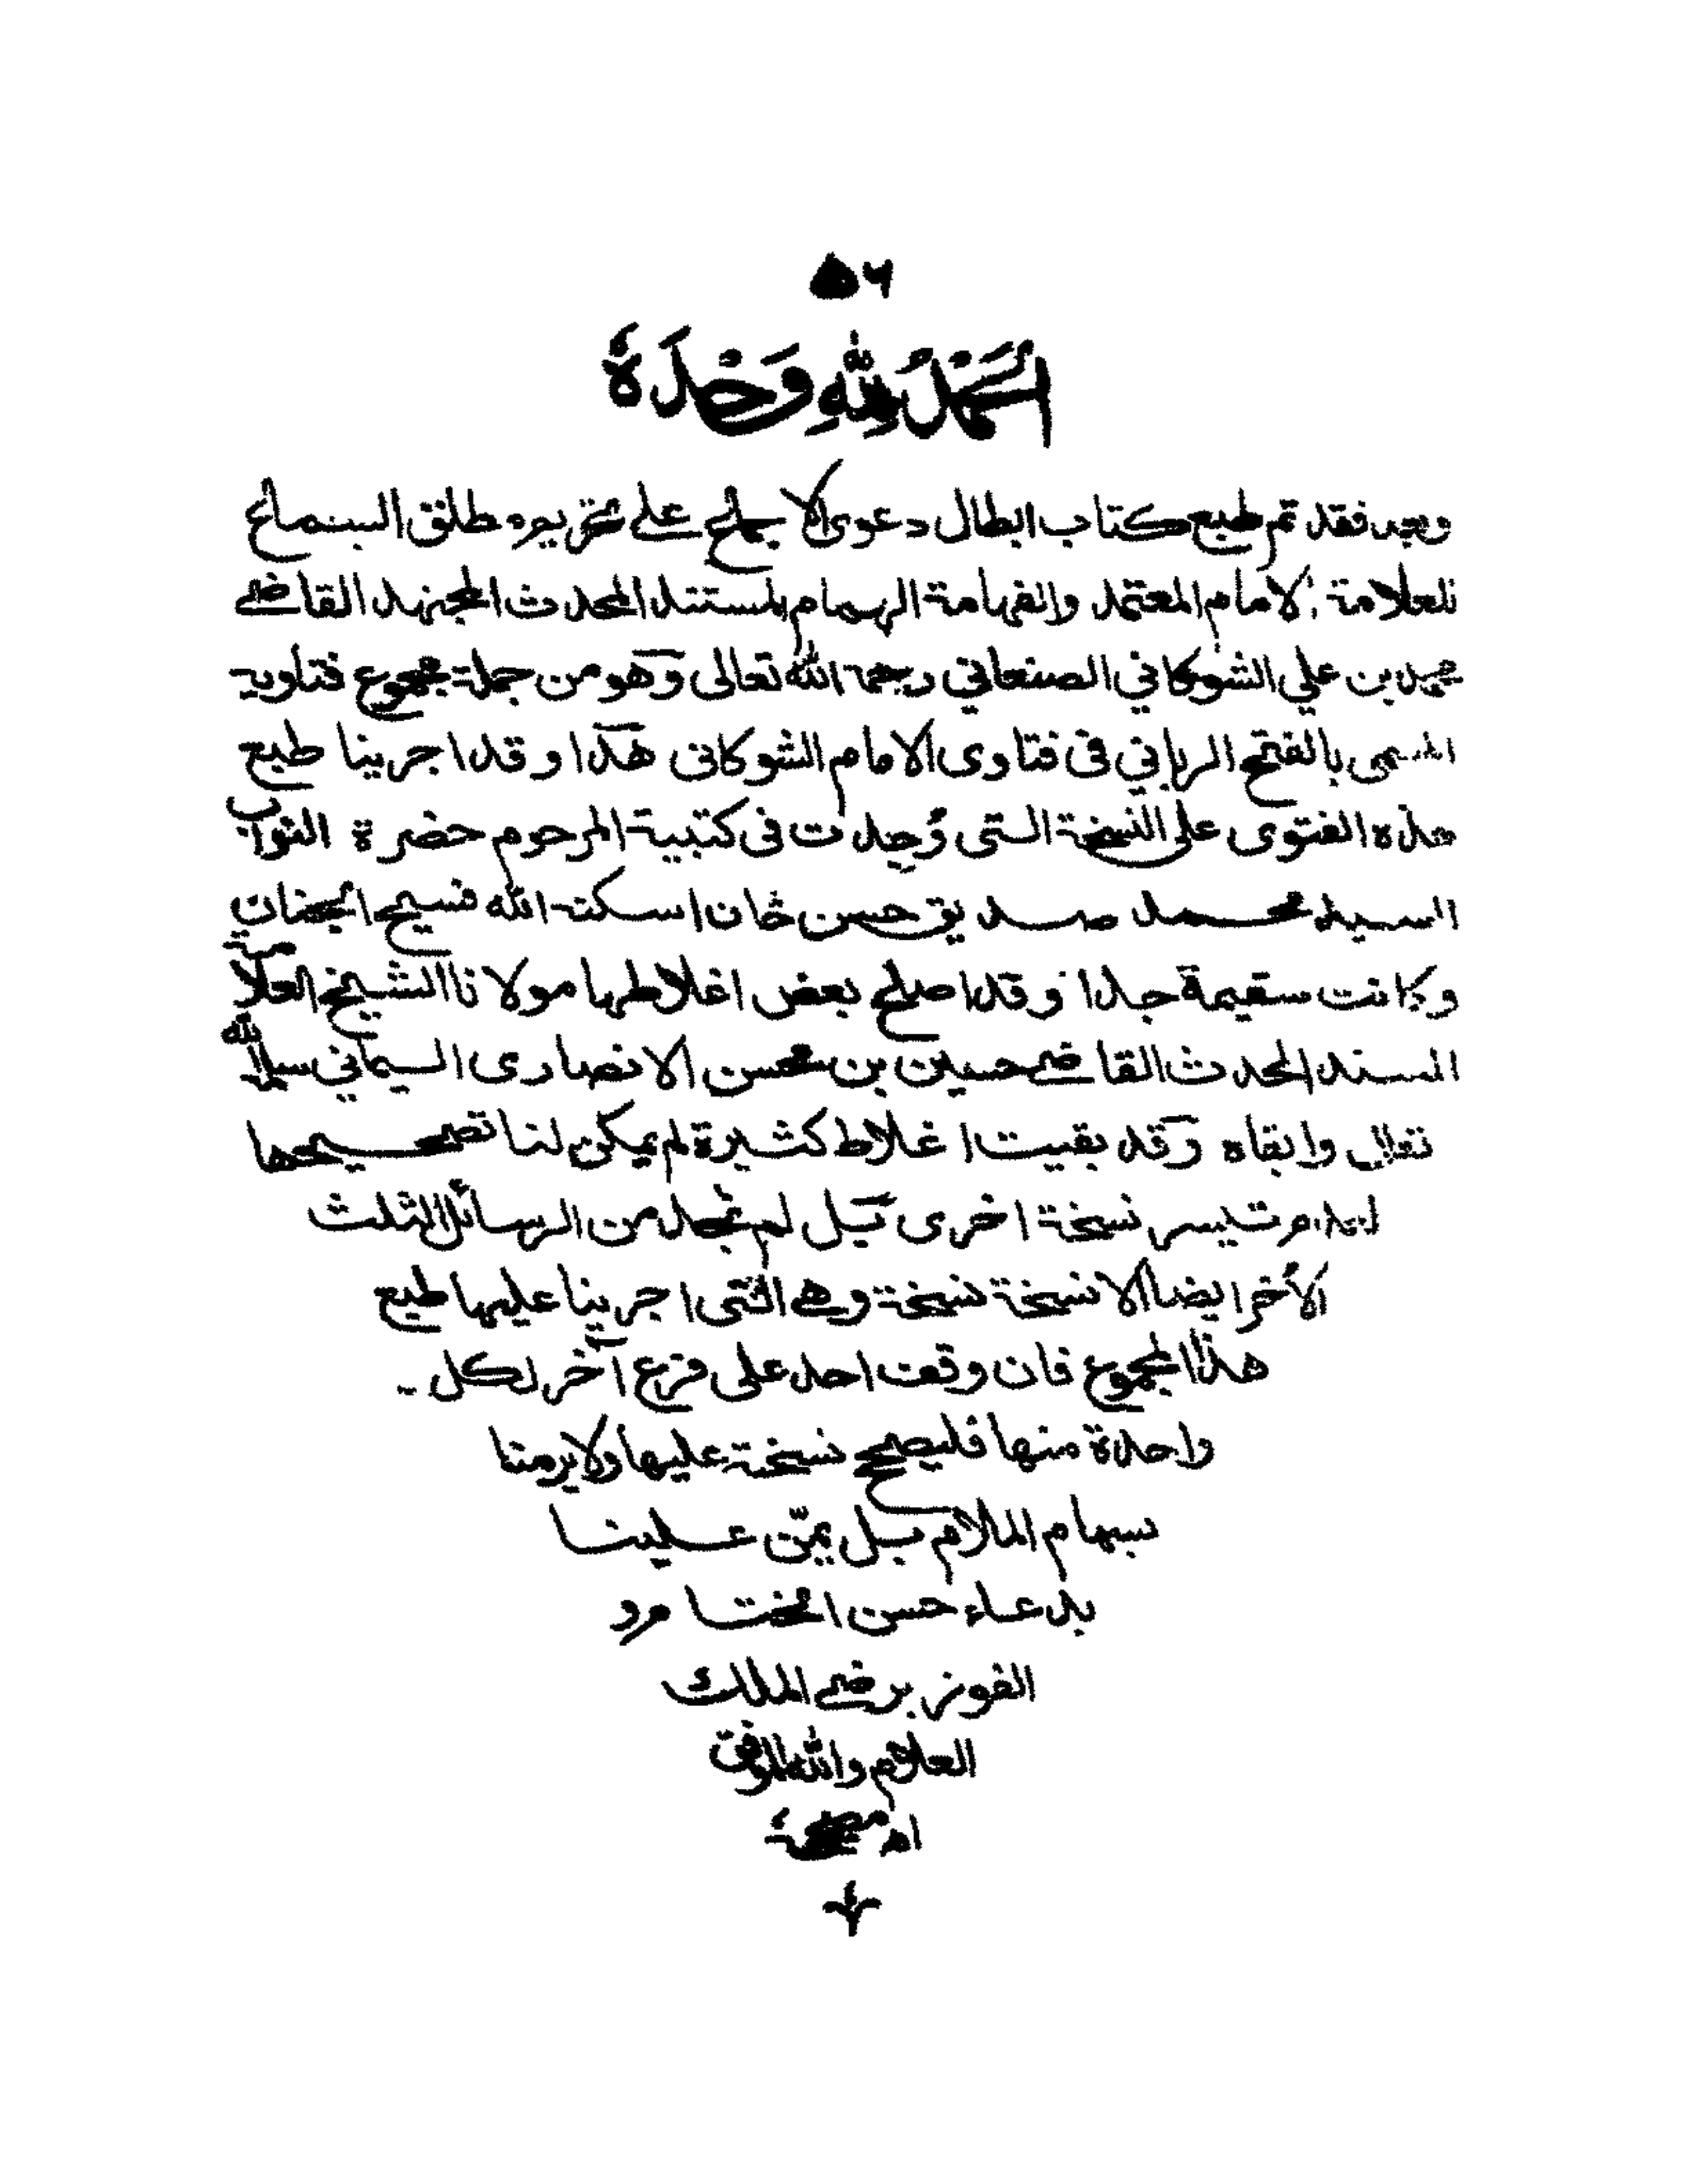 ٥٦
الحَمْدُ لِلّٰهِ وَحْدَهُ
وبعد فقد تم طبع كتاب ابطال دعوى الاجماع على تحريم مطلق السماع
للعلامة الامام المعتمد والفهامة الهمام المستند المحدث المجتهد القاضي
محمد بن علي الشوكاني الصنعاني رحمه الله تعالى وهو من جملة مجموع فتاويه
المسمى بالفتح الرباني في فتاوى الامام الشوكاني هذا وقد اجرينا طبع
هذه الفتوى على النسخة التى وُجِدت فى كتبية المرحوم حضرة النواب
السيد محمد صديق حسن خان اسكنه الله فسيح الجنان
وكانت سقيمة جدا وقد اصلح بعض اغلاطها مولانا الشيخ العلامة
المسند المحدث القاضي حسين بن محسن الانصارى اليماني سلمه الله
تعالى وابقاه وقد بقيت اغلاط كثيرة لم يمكن لنا تصحيحها
لعدم تيسر نسخة اخرى بل لم نجد من الرسائل الثلث
الأخر ايضا الا نسخة نسخة وهي التى اجرينا عليها طبع
هذا المجموع فان وقف احد على فرع آخر لكل
واحدة منها فليصحح نسخته عليها ولا يرمنا
بسهام الملام بل يمنّ علينا
بدعاء حسن الختام و
الفوز برضي الملك
العلام والله الموفق
اه مصححهُ